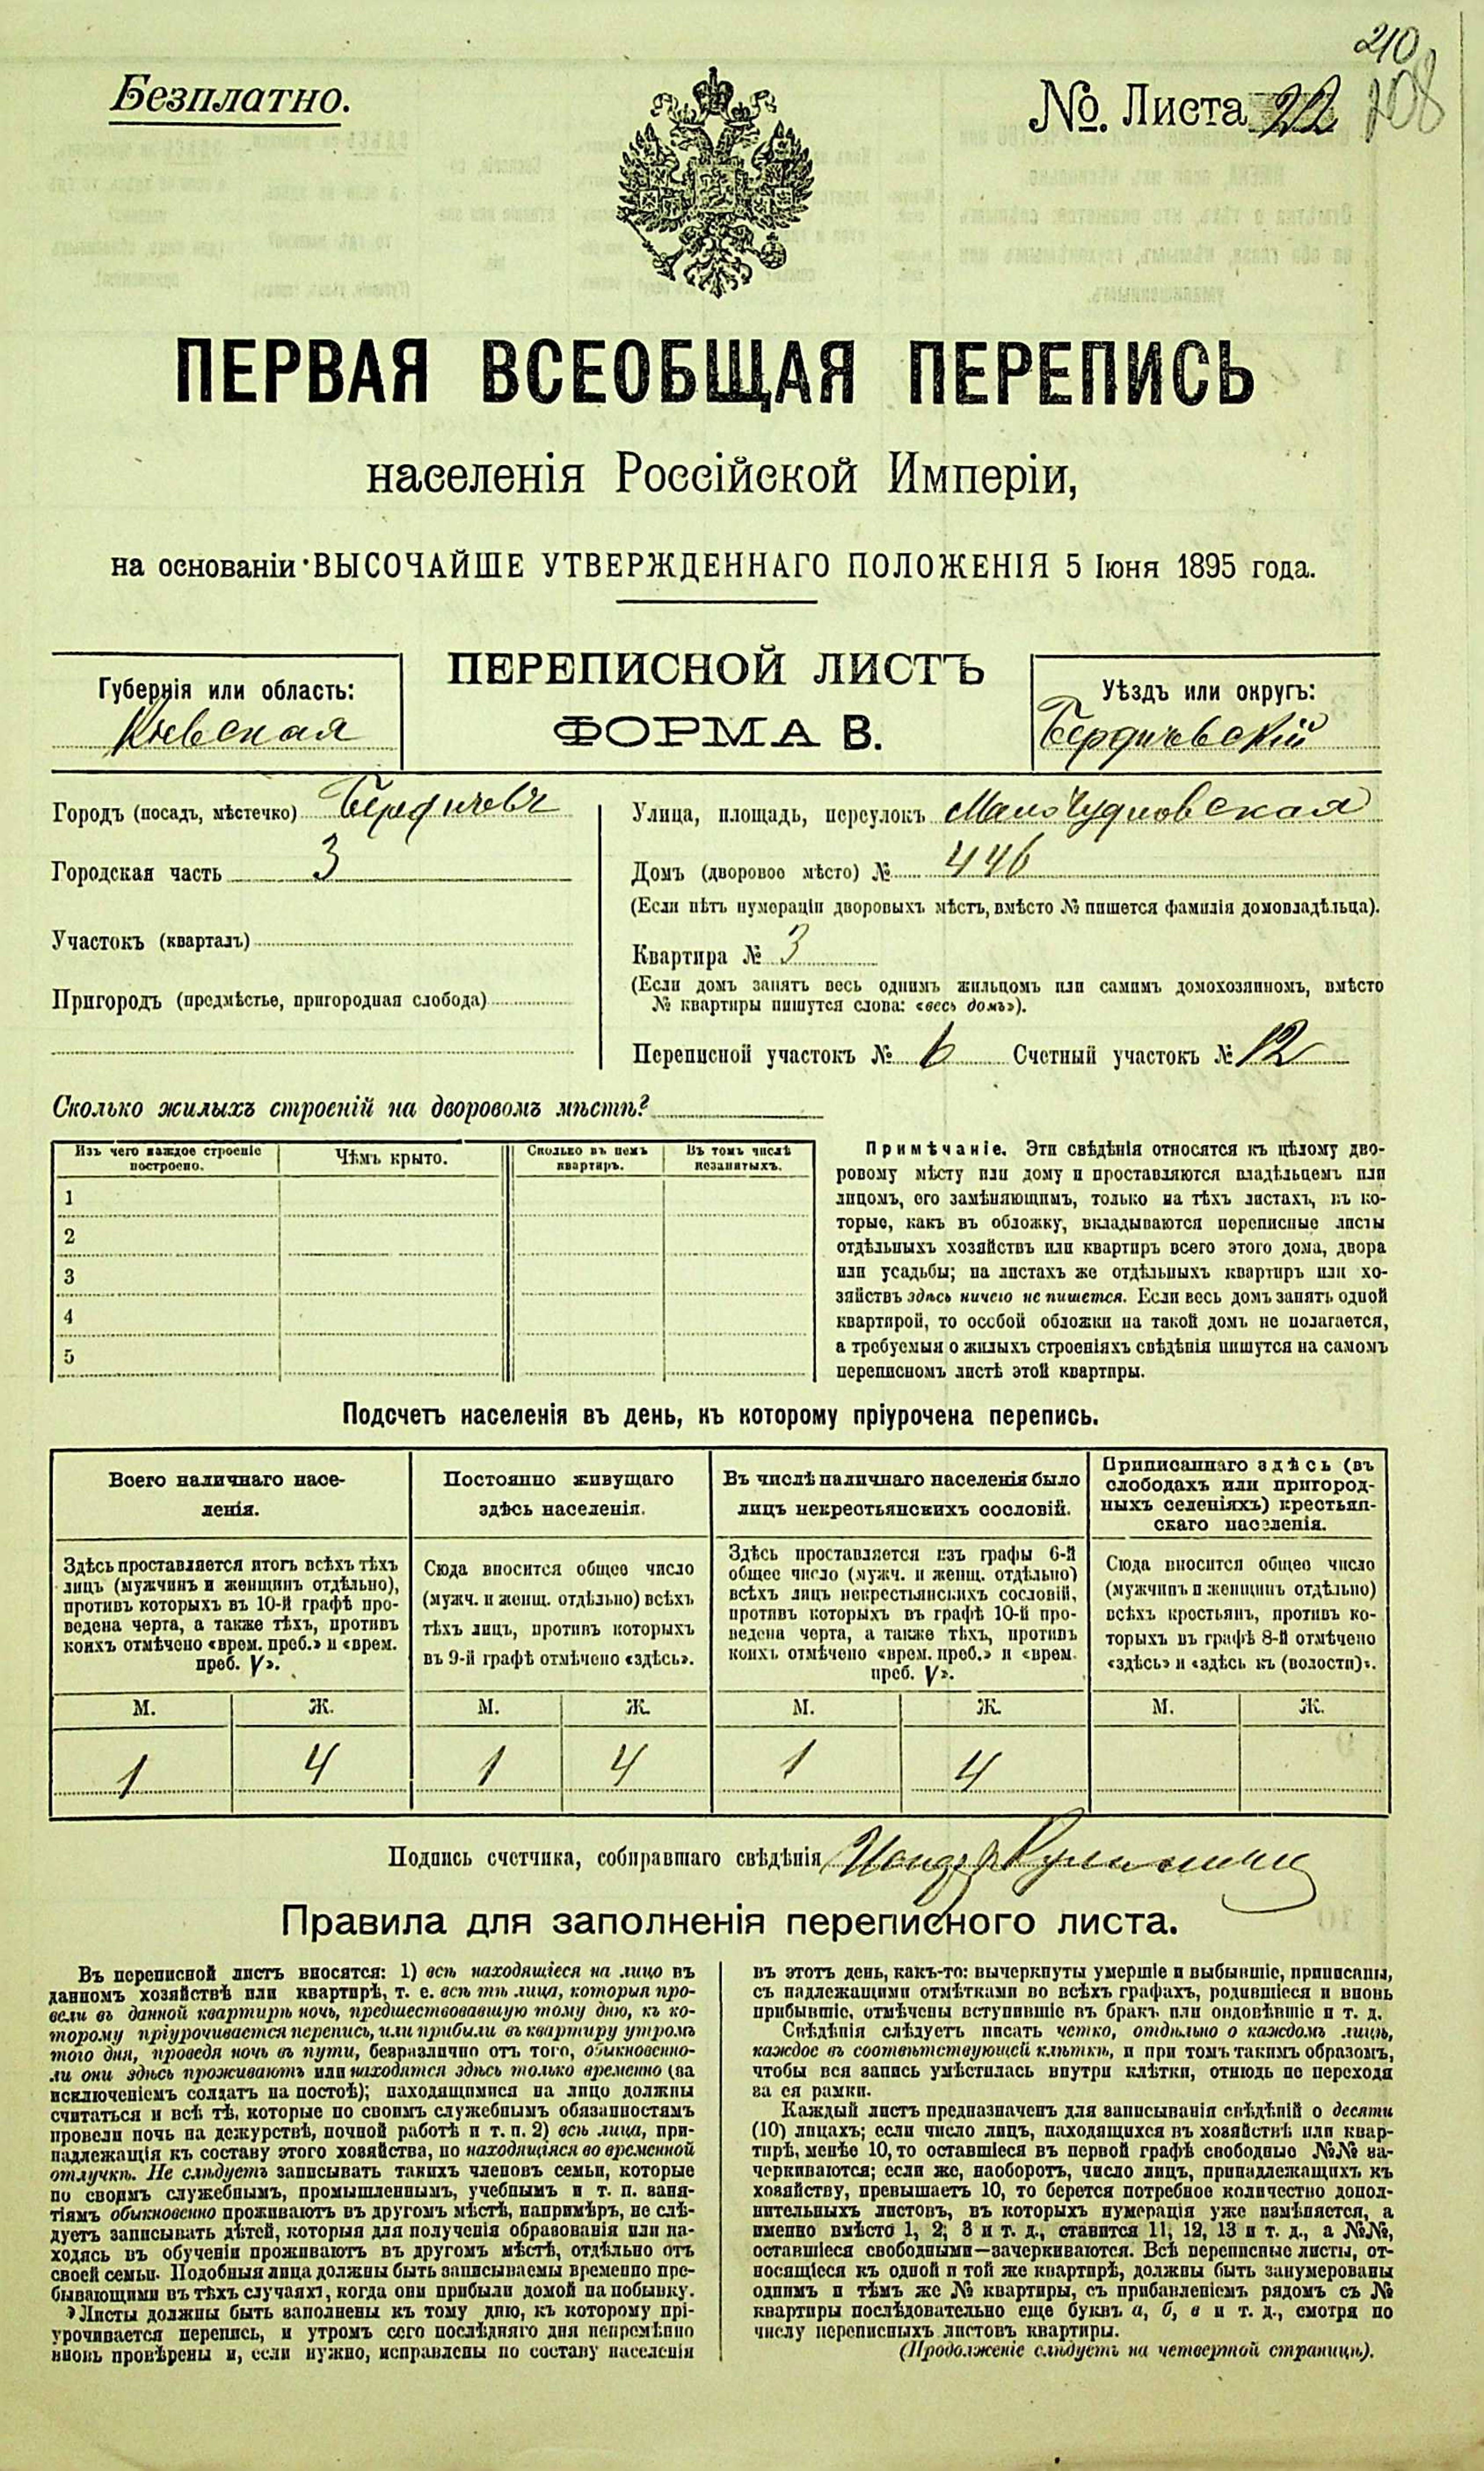 210
108
Безплатно.
№. Листа 22
ПЕРВАЯ ВСЕОБЩАЯ ПЕРЕПИСЬ
населенія Россійской Имперіи,
на основаніи ВЫСОЧАЙШЕ УТВЕРЖДЕННАГО ПОЛОЖЕНІЯ 5 Іюня 1895 года.
ПЕРЕПИСНОЙ ЛИСТЪ
ФОРМА В.
Губернія или область:
Кіевская
Уѣздъ или округъ:
Бердичевскій
Городъ (посадъ, мѣстечко) Бердичевъ
Городская часть 3
Участокъ (кварталъ)
Пригородъ (предмѣстье, пригородная слобода)
Улица, площадь, переулокъ Мало Чудновская
Домъ (дворовое мѣсто) № 446
(Если нѣтъ нумераціи дворовыхъ мѣстъ, вмѣсто № пишется фамилія домовладѣльца).
Квартира № 3
(Если домъ занятъ весь однимъ жильцомъ или самимъ домохозяиномъ, вмѣсто
№ квартиры пишутся слова: «весь домъ»).
Переписной участокъ № 6 Счетный участокъ № 12
Сколько жилыхъ строеній на дворовомъ мѣстѣ?
Изъ чего каждое строеніе
построено.
Чѣмъ крыто.
Сколько въ немъ
квартиръ.
Въ томъ числѣ
незанятыхъ.
1
2
3
4
5
Примѣчаніе. Эти свѣдѣнія относятся къ цѣлому дво-
ровому мѣсту или дому и проставляются владѣльцемъ или
лицомъ, его замѣняющимъ, только на тѣхъ листахъ, въ ко-
торые, какъ въ обложку, вкладываются переписные листы
отдѣльныхъ хозяйствъ или квартиръ всего этого дома, двора
или усадьбы; на листахъ же отдѣльныхъ квартиръ или хо-
зяйствъ здѣсь ничего не пишется. Если весь домъ занятъ одной
квартирой, то особой обложки на такой домъ не полагается,
а требуемыя о жилыхъ строеніяхъ свѣдѣнія пишутся на самомъ
переписномъ листѣ этой квартиры.
Подсчетъ населенія въ день, къ которому пріурочена перепись.
Всего наличнаго насе-
ленія.
Здѣсь проставляется итогъ всѣхъ тѣхъ
лицъ (мужчинъ и женщинъ отдѣльно),
противъ которыхъ въ 10-й графѣ про-
ведена черта, а также тѣхъ, противъ
коихъ отмѣчено «врем. преб.» и «врем.
преб. V».
Постоянно живущаго
здѣсь населенія.
Сюда вносится общее число
(мужч. и женщ. отдѣльно) всѣхъ
тѣхъ лицъ, противъ которыхъ
въ 9-й графѣ отмѣчено «здѣсь».
Въ числѣ наличнаго населенія было
лицъ некрестьянскихъ сословій.
Здѣсь проставляется изъ графы 6-й
общее число (мужч. и женщ. отдѣльно)
всѣхъ лицъ некрестьянскихъ сословій,
противъ которыхъ въ графѣ 10-й про-
ведена черта, а также тѣхъ, противъ
коихъ отмѣчено «врем. преб.» и «врем.
преб. V».
Приписаннаго здѣсь (въ
слободахъ или пригород-
ныхъ селеніяхъ) крестьян-
скаго населенія.
Сюда вносится общее число
(мужчинъ и женщинъ отдѣльно)
всѣхъ крестьянъ, противъ ко-
торыхъ въ графѣ 8-й отмѣчено
«здѣсь» и «здѣсь къ (волости)».
М. Ж. М. Ж. М. Ж. М. Ж.
1 4 1 4 1 4
Подпись счетчика, собиравшаго свѣдѣнія
Правила для заполненія переписного листа.
Въ переписной листъ вносятся: 1) всѣ находящіеся на лицо въ
данномъ хозяйствѣ или квартирѣ, т. е. всѣ тѣ лица, которыя про-
вели въ данной квартирѣ ночь, предшествовавшую тому дню, къ ко-
торому пріурочивается перепись, или прибыли въ квартиру утромъ
того дня, проведя ночь въ пути, безразлично отъ того, обыкновенно-
ли они здѣсь проживаютъ или находятся здѣсь только временно (за
исключеніемъ солдатъ на постоѣ); находящимися на лицо должны
считаться и всѣ тѣ, которые по своимъ служебнымъ обязанностямъ
провели ночь на дежурствѣ, ночной работѣ и т. п. 2) всѣ лица, при-
надлежащія къ составу этого хозяйства, но находящіяся во временной
отлучкѣ. Не слѣдуетъ записывать такихъ членовъ семьи, которые
по своимъ служебнымъ, промышленнымъ, учебнымъ и т. п. заня-
тіямъ обыкновенно проживаютъ въ другомъ мѣстѣ, напримѣръ, не слѣ-
дуетъ записывать дѣтей, которыя для полученія образованія или на-
ходясь въ обученіи проживаютъ въ другомъ мѣстѣ, отдѣльно отъ
своей семьи. Подобныя лица должны быть записываемы временно пре-
бывающими въ тѣхъ случаяхъ, когда они прибыли домой на побывку.
Листы должны быть заполнены къ тому дню, къ которому прі-
урочивается перепись, и утромъ сего послѣдняго дня непремѣнно
вновь провѣрены и, если нужно, исправлены по составу населенія
въ этотъ день, какъ-то: вычеркнуты умершіе и выбывшіе, приписаны,
съ надлежащими отмѣтками во всѣхъ графахъ, родившіеся и вновь
прибывшіе, отмѣчены вступившіе въ бракъ или овдовѣвшіе и т. д.
Свѣдѣнія слѣдуетъ писать четко, отдѣльно о каждомъ лицѣ,
каждое въ соотвѣтствующей клѣткѣ, и при томъ такимъ образомъ,
чтобы вся запись умѣстилась внутри клѣтки, отнюдь не переходя
за ея рамки.
Каждый листъ предназначенъ для записыванія свѣдѣній о десяти
(10) лицахъ; если число лицъ, находящихся въ хозяйствѣ или квар-
тирѣ, менѣе 10, то оставшіеся въ первой графѣ свободные №№ за-
черкиваются; если же, наоборотъ, число лицъ, принадлежащихъ къ
хозяйству, превышаетъ 10, то берется потребное количество допол-
нительныхъ листовъ, въ которыхъ нумерація уже измѣняется, а
именно вмѣсто 1, 2, 3 и т. д., ставится 11, 12, 13 и т. д., а №№,
оставшіеся свободными—зачеркиваются. Всѣ переписные листы, от-
носящіеся къ одной и той же квартирѣ, должны быть занумерованы
однимъ и тѣмъ же № квартиры, съ прибавленіемъ рядомъ съ №
квартиры послѣдовательно еще буквъ а, б, в и т. д., смотря по
числу переписныхъ листовъ квартиры.
(Продолженіе слѣдуетъ на четвертой страницѣ).